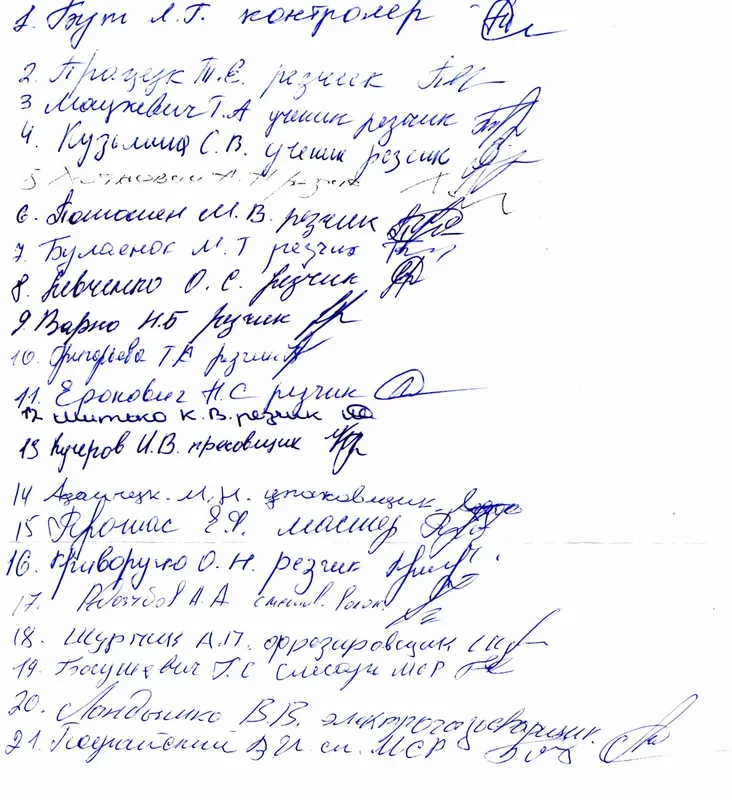 1. Бут Л.Г. контролер
2. Працук Т.Е. резчик
3 Мацкевич Т.А ученик резчик
4. Кузьмина С.В. ученик резчик
5
6. М.В. резчик
7. Булавенок М.Т резчик
8. Левченко О.С. резчик
9. Варно Н.Б резчик
10. Григорьева Т.А резчик
11. Еронович Н.С резчик
12 Митько К.В. резчик
13 Кучеров И.В. пресовщик
14 М.Н. упаковщик
15 Прошас Е.Ф. мастер
16. Криворучко О.Н. резчик
17. А.А
18. Шурпик А.П. фрезировщик
19. Г.С слесарь МСР
20. Лондышко В.В. электрогазосварщик.
21. сл. МСР